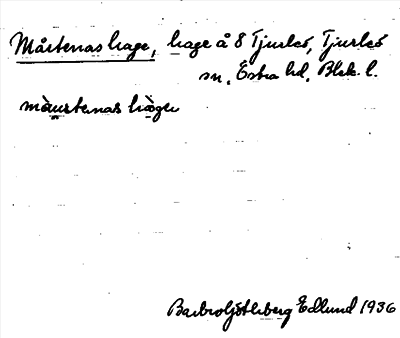 Mårtenas hage, hage å 8 Tjurkö, Tjurkö
sn, Östra hd, Blek. l.
màurtenas hàger
Barbro Götberg Edlund 1936